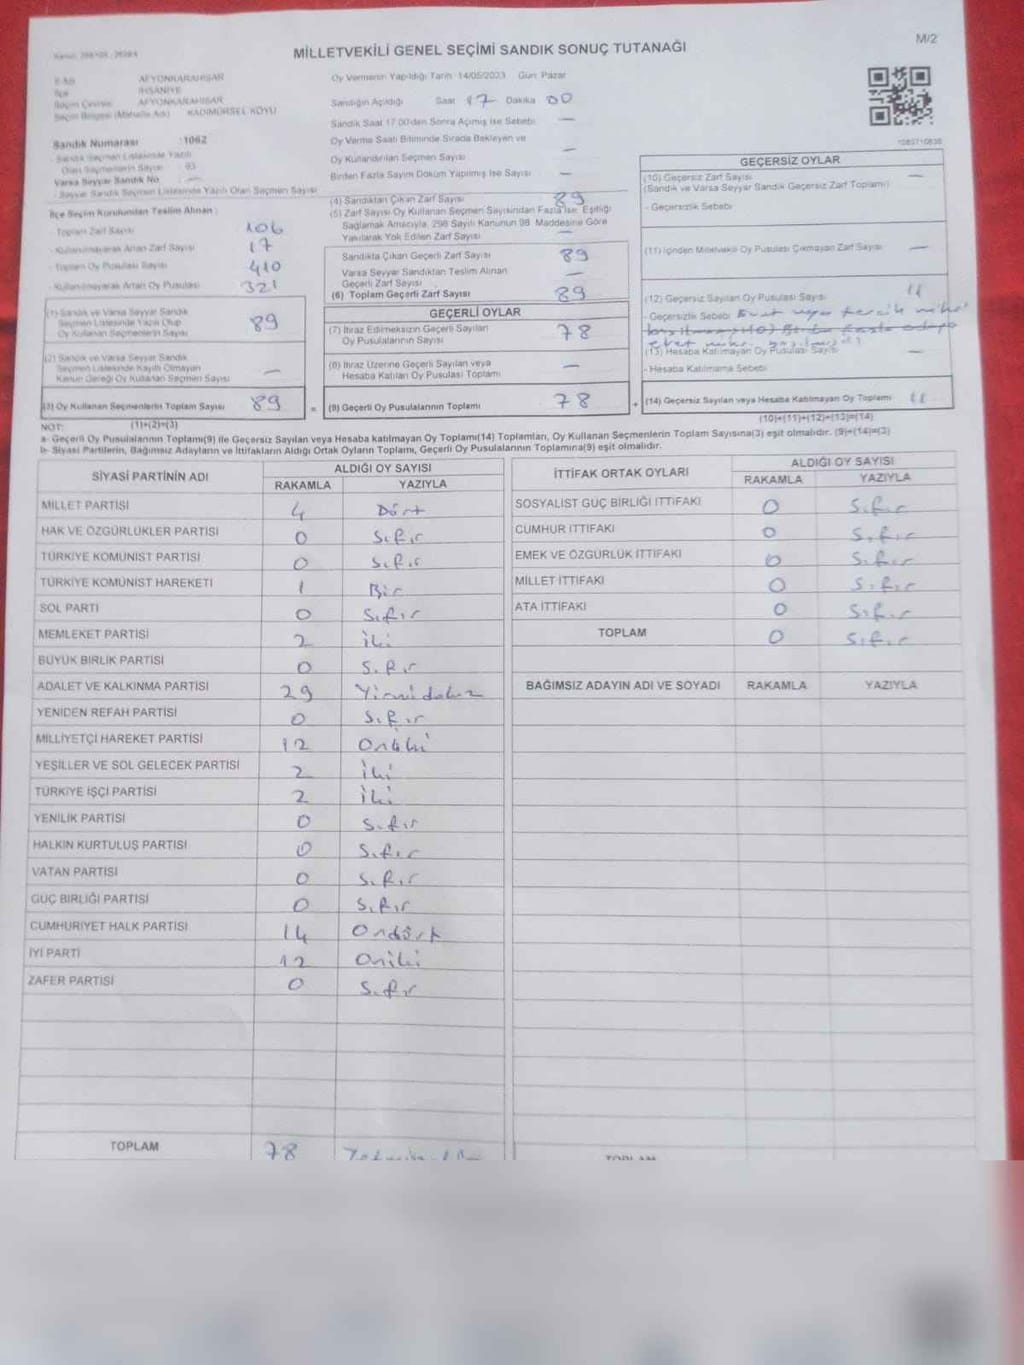 MİLLETVEKİLİ GENEL SEÇİMİ SANDIK SONUÇ TUTANAĞI
M/2
İli AFYONKARAHİSAR
İlçe İHSANİYE
Seçim Çevresi AFYONKARAHİSAR
Seçim Bölgesi (Mahalle Adı) KADIMÜRSEL KÖYÜ
Sandık Numarası :1062
- Sandık Seçmen Listesinde Yazılı
Olan Seçmenlerin Sayısı 93
Varsa Seyyar Sandık No : —
- Seyyar Sandık Seçmen Listesinde Yazılı Olan Seçmen Sayısı
İlçe Seçim Kurulundan Teslim Alınan :
- Toplam Zarf Sayısı 106
- Kullanılmayarak Artan Zarf Sayısı 17
- Toplam Oy Pusulası Sayısı 410
- Kullanılmayarak Artan Oy Pusulası 321
(1) Sandık ve Varsa Seyyar Sandık
Seçmen Listesinde Yazılı Olup
Oy Kullanan Seçmenlerin Sayısı 89
(2) Sandık ve Varsa Seyyar Sandık
Seçmen Listesinde Kayıtlı Olmayan
Kanun Gereği Oy Kullanan Seçmen Sayısı —
(3) Oy Kullanan Seçmenlerin Toplam Sayısı 89
(1)+(2)=(3)
Oy Vermenin Yapıldığı Tarih :14/05/2023 Gün: Pazar
Sandığın Açıldığı Saat 17 Dakika 00
Sandık Saat 17.00'den Sonra Açılmış İse Sebebi —
Oy Verme Saati Bitiminde Sırada Bekleyen ve
Oy Kullandırılan Seçmen Sayısı —
Birden Fazla Sayım Döküm Yapılmış İse Sayısı —
(4) Sandıktan Çıkan Zarf Sayısı 89
(5) Zarf Sayısı Oy Kullanan Seçmen Sayısından Fazla ise, Eşitliği
Sağlamak Amacıyla, 298 Sayılı Kanunun 98. Maddesine Göre
Yakılarak Yok Edilen Zarf Sayısı —
Sandıkta Çıkan Geçerli Zarf Sayısı 89
Varsa Seyyar Sandıktan Teslim Alınan
Geçerli Zarf Sayısı —
(6) Toplam Geçerli Zarf Sayısı 89
GEÇERLİ OYLAR
(7) İtiraz Edilmeksizin Geçerli Sayılan
Oy Pusulalarının Sayısı 78
(8) İtiraz Üzerine Geçerli Sayılan veya
Hesaba Katılan Oy Pusulası Toplamı —
= (9) Geçerli Oy Pusulalarının Toplamı 78
GEÇERSİZ OYLAR
(10) Geçersiz Zarf Sayısı —
(Sandık ve Varsa Seyyar Sandık Geçersiz Zarf Toplamı)
- Geçersizlik Sebebi
(11) İçinden Milletvekili Oy Pusulası Çıkmayan Zarf Sayısı —
(12) Geçersiz Sayılan Oy Pusulası Sayısı 11
- Geçersizlik Sebebi Evet veya tercih mührü
(13) Hesaba Katılmayan Oy Pusulası Sayısı —
- Hesaba Katılmama Sebebi
+ (14) Geçersiz Sayılan veya Hesaba Katılmayan Oy Toplamı 11
(10)+(11)+(12)+(13)=(14)
NOT:
a- Geçerli Oy Pusulalarının Toplamı(9) ile Geçersiz Sayılan veya Hesaba katılmayan Oy Toplamı(14) Toplamları, Oy Kullanan Seçmenlerin Toplam Sayısına(3) eşit olmalıdır. (9)+(14)=(3)
b- Siyasi Partilerin, Bağımsız Adayların ve İttifakların Aldığı Ortak Oyların Toplamı, Geçerli Oy Pusulalarının Toplamına(9) eşit olmalıdır.
SİYASİ PARTİNİN ADI ALDIĞI OY SAYISI
RAKAMLA YAZIYLA
MİLLET PARTİSİ 4 Dört
HAK VE ÖZGÜRLÜKLER PARTİSİ 0 Sıfır
TÜRKİYE KOMÜNİST PARTİSİ 0 Sıfır
TÜRKİYE KOMÜNİST HAREKETİ 1 Bir
SOL PARTİ 0 Sıfır
MEMLEKET PARTİSİ 2 İki
BÜYÜK BİRLİK PARTİSİ 0 Sıfır
ADALET VE KALKINMA PARTİSİ 29 Yirmidokuz
YENİDEN REFAH PARTİSİ 0 Sıfır
MİLLİYETÇİ HAREKET PARTİSİ 12 Oniki
YEŞİLLER VE SOL GELECEK PARTİSİ 2 İki
TÜRKİYE İŞÇİ PARTİSİ 2 İki
YENİLİK PARTİSİ 0 Sıfır
HALKIN KURTULUŞ PARTİSİ 0 Sıfır
VATAN PARTİSİ 0 Sıfır
GÜÇ BİRLİĞİ PARTİSİ 0 Sıfır
CUMHURİYET HALK PARTİSİ 14 Ondört
İYİ PARTİ 12 Oniki
ZAFER PARTİSİ 0 Sıfır
TOPLAM 78
İTTİFAK ORTAK OYLARI ALDIĞI OY SAYISI
RAKAMLA YAZIYLA
SOSYALİST GÜÇ BİRLİĞİ İTTİFAKI 0 Sıfır
CUMHUR İTTİFAKI 0 Sıfır
EMEK VE ÖZGÜRLÜK İTTİFAKI 0 Sıfır
MİLLET İTTİFAKI 0 Sıfır
ATA İTTİFAKI 0 Sıfır
TOPLAM 0 Sıfır
BAĞIMSIZ ADAYIN ADI VE SOYADI RAKAMLA YAZIYLA
TOPLAM